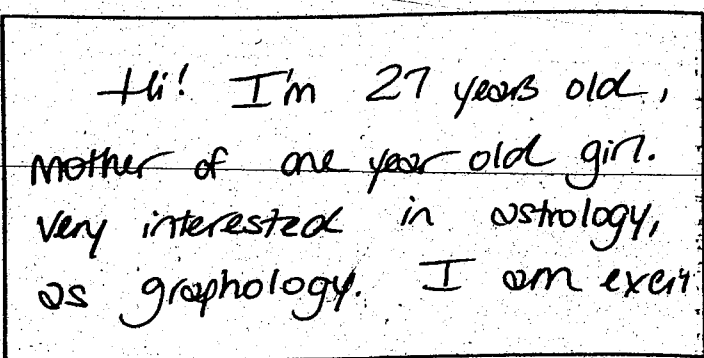 Hi! I'm 27 years old,
mother of one year old girl.
very interested in astrology,
as graphology. I am